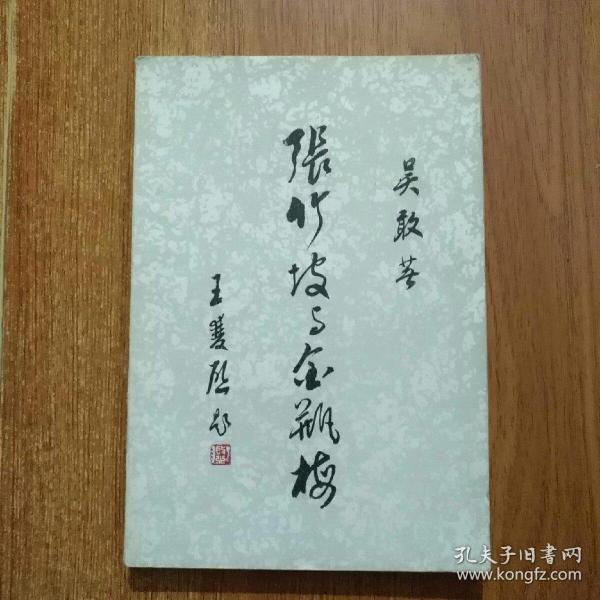 吴敢著
張竹坡与金瓶梅
王雙啟题
孔夫子旧書网
www.kongfz.com